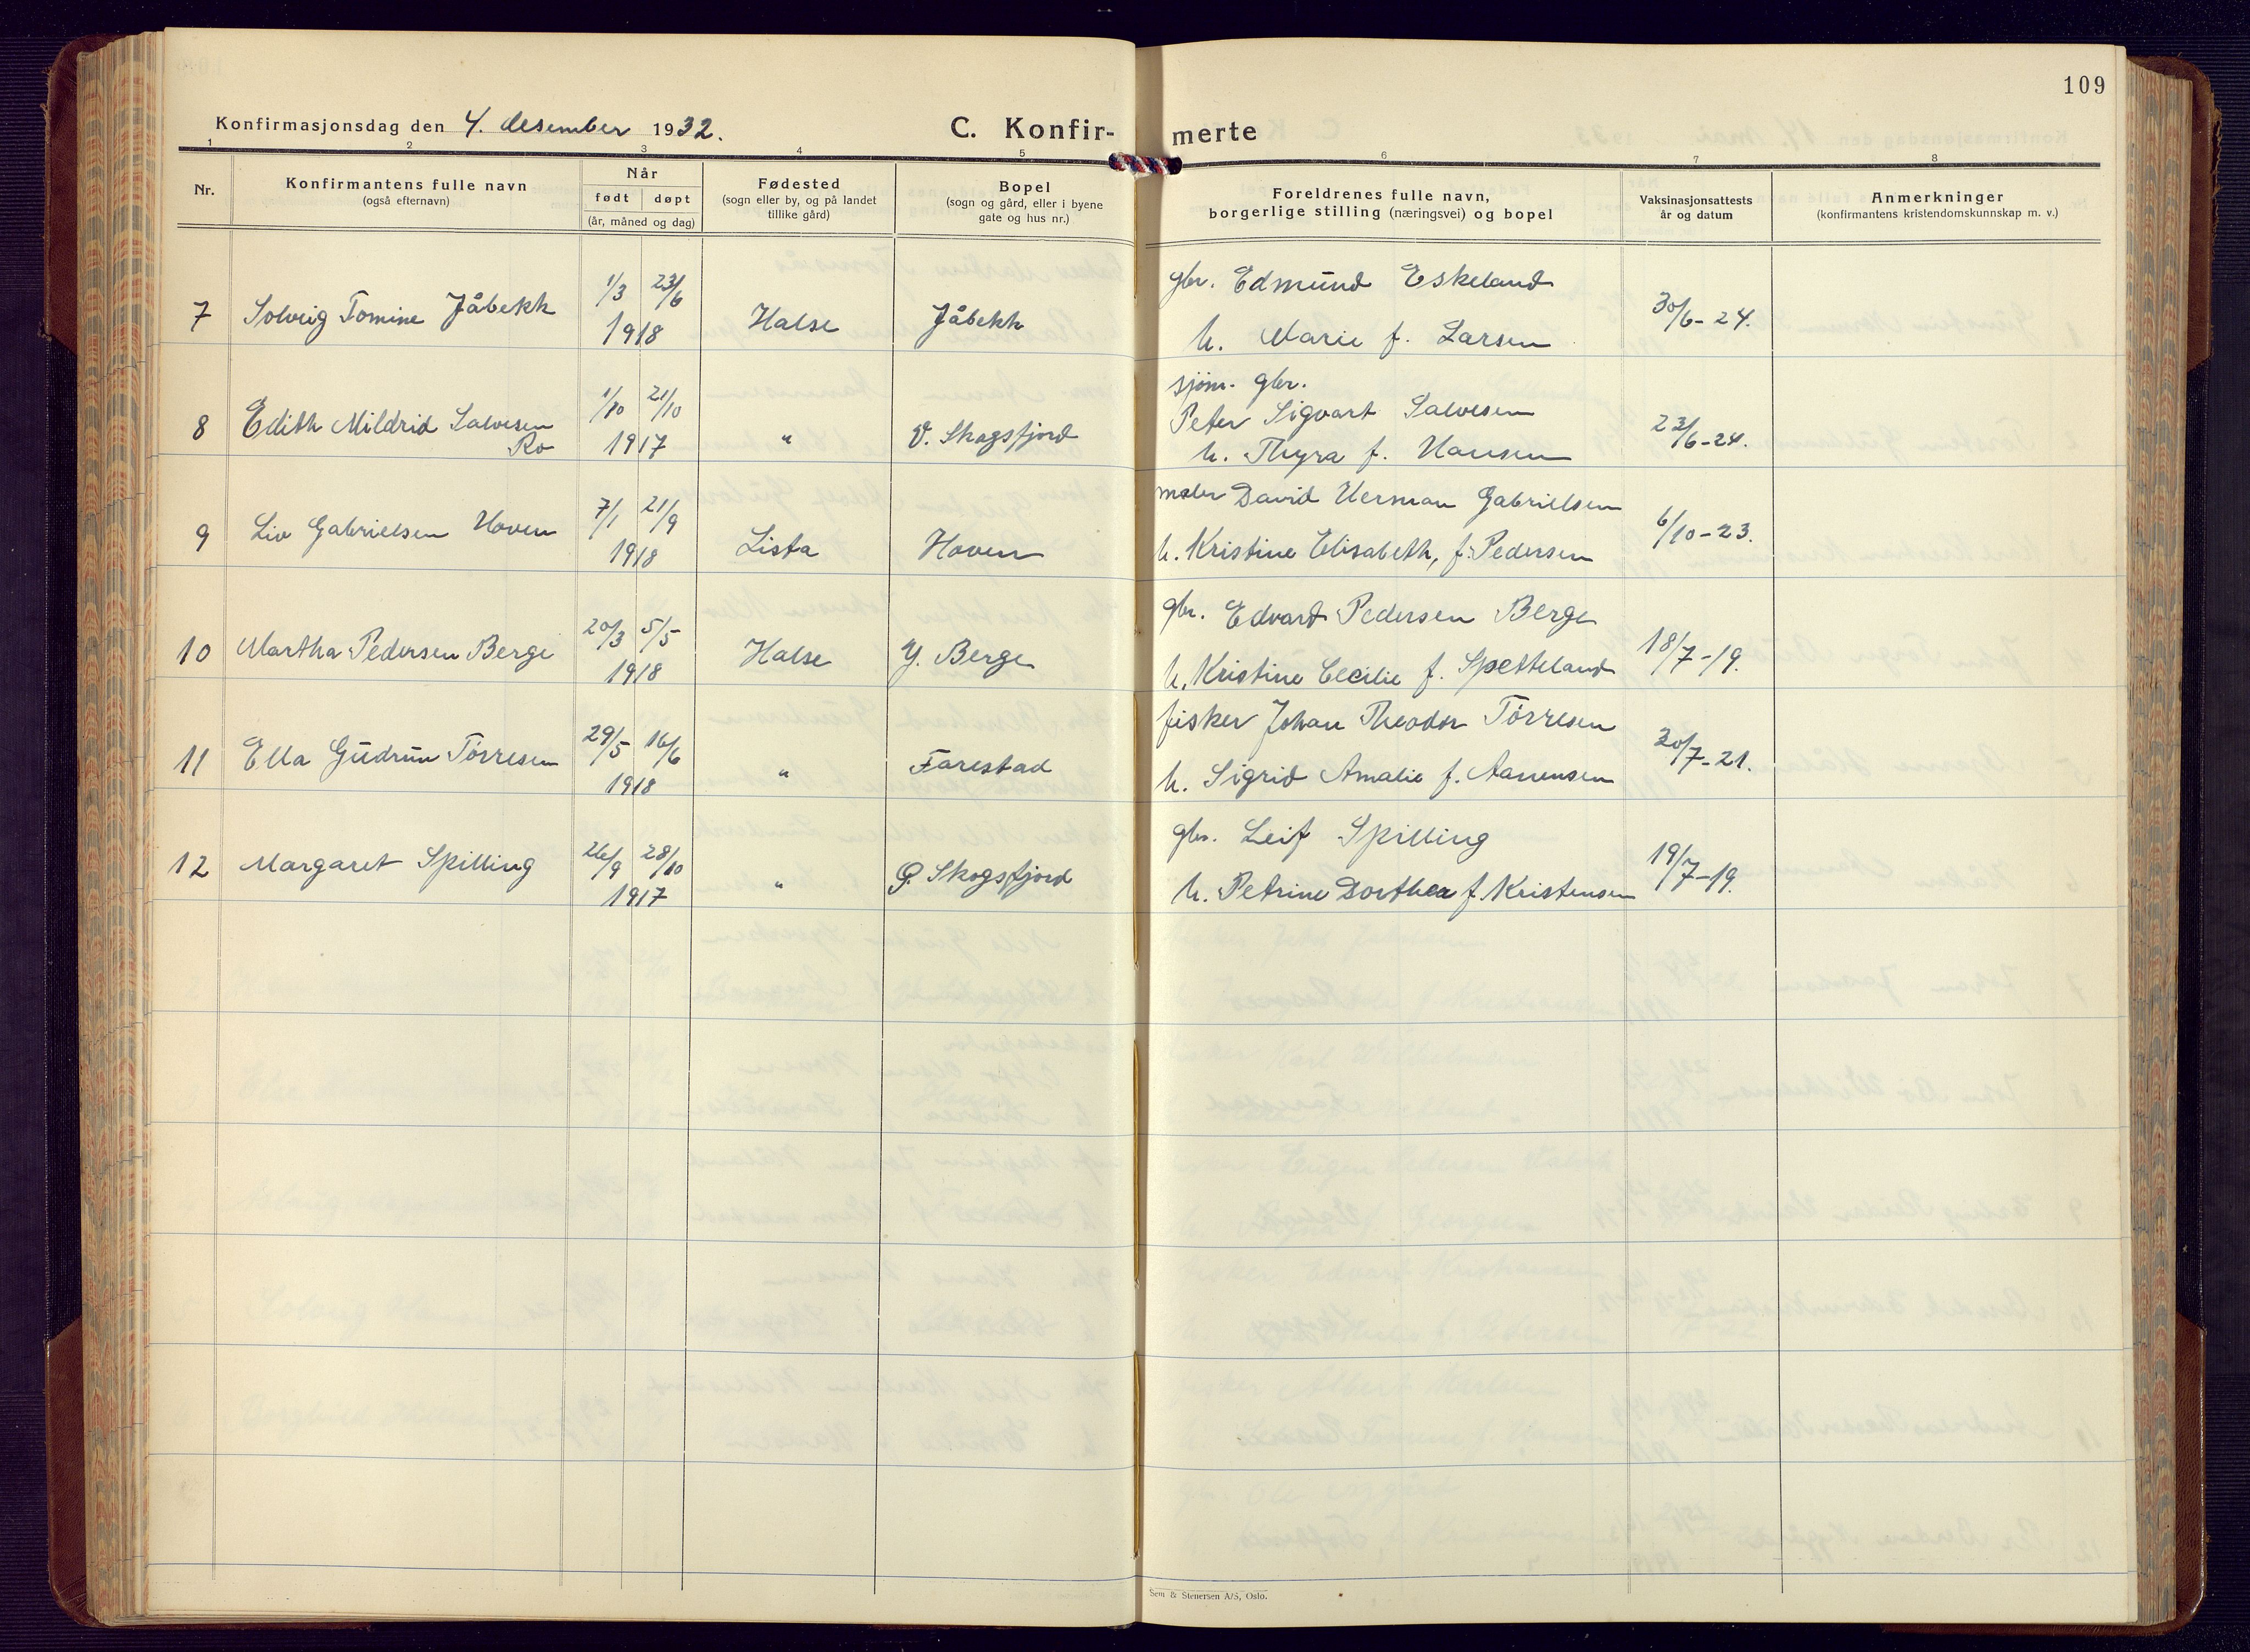 109
Konfirmasjonsdag den 4. desember 1932.
C. Konfir- merte
1 2 3 4 5 6 7 8
Nr.
Konfirmantens fulle navn
(også efternavn)
Når
født døpt
(år, måned og dag)
Fødested
(sogn eller by, og på landet
tillike gård)
Bopel
(sogn og gård, eller i byene
gate og hus nr.)
Foreldrenes fulle navn,
borgerlige stilling (næringsvei) og bopel
Vaksinasjonsattests
år og datum
Anmerkninger
(konfirmantens kristendomskunnskap m. v.)
7 Solveig Tomine Jåbekk 1/3 23/6 1918 Halse Jåbekk
gbr. Edmund Eskeland
h. Marie f. Larsen
30/6-24.
8 Edith Mildrid Salvesen
Ro
1/10 21/10 1917 " V. Skogsfjord
sjøm. gbr.
Peter Sigvart Salvesen
h. Thyra f. Hansen
23/6-24.
9 Liv Gabrielsen Hoven 7/1 21/9 1918 Lista Hoven
maler David Herman Gabrielsen
h. Kristine Elisabeth, f. Pedersen
6/10-23.
10 Martha Pedersen Berge 20/3 5/5 1918 Halse Y. Berge
gbr. Edvard Pedersen Berge
h. Kristine Cecilie f. Spetteland
18/7-19.
11 Ella Gudrun Tørresen 29/5 16/6 1918 " Farestad
fisker Johan Theodor Tørresen
h. Sigrid Amalie f. Aanensen
20/7-21.
12 Margaret Spilling 26/9 28/10 1917 " Ø. Skogsfjord
gbr. Leif Spilling
h. Petrine Dorthea f. Kristensen
19/7-19.
Sem & Stenersen A/S, Oslo.